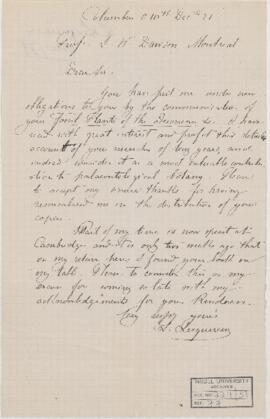 Columbus O Dec 71
Prof. J W Dawson Montreal
Dear Sir.
You have put me under new
obligations to you by the communication of
your Fossil Plants of the Devonian &c. I have
read with great interest and profit this
account of your researches of long years, and
indeed consider it as a most valuable contribu
tion to palaeontological botany. Please
to accept my sincere thanks for having
remembered me in the distribution of your
copies.
Most of my time is now spent at
Cambridge and it is only two weeks ago that
on my return here, I found your book on
my table. Please to consider this as my
excuse for coming so late with my
acknowledgements for your kindness.
Very truly yours
L. Lesquereux
McGILL UNIVERSITY
ARCHIVES
ACC. NO.
REF.